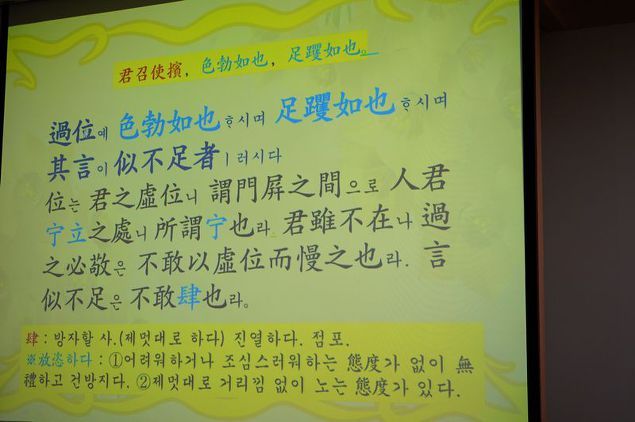 君召使擯, 色勃如也, 足躩如也。
過位에 色勃如也ᄒᆞ시며 足躩如也ᄒᆞ시며
其言이 似不足者ㅣ러시다
位는 君之虛位니 謂門屛之間으로 人君
宁立之處니 所謂宁也라 君雖不在나 過
之必敬은 不敢以虛位而慢之也라. 言
似不足은 不敢肆也라。
肆 : 방자할 사.(제멋대로 하다) 진열하다. 점포.
※放恣하다 : ①어려워하거나 조심스러워하는 態度가 없이 無
禮하고 건방지다. ②제멋대로 거리낌 없이 노는 態度가 있다.